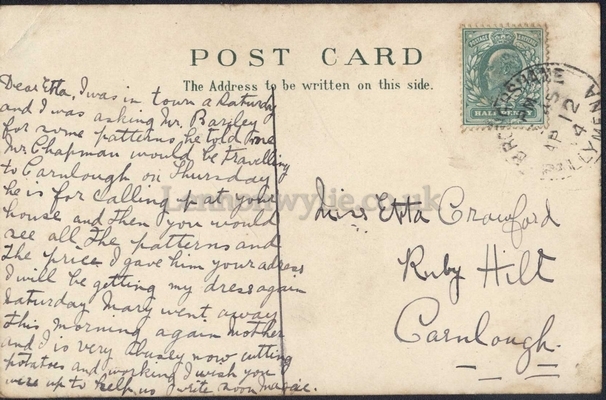 POST CARD
The Address to be written on this side.
Dear Etta, I was in town a Saturday
and I was asking Mr. Barkley
for some patterns, he told me
Mr. Chapman would be travelling
to Carnlough on Thursday
he is for calling at your
house and then you would
see all the patterns and
the price I gave him your adress
I will be getting my dress again
Saturday Mary went away
this morning again Mother
and I is very busey now cutting
potatoes and working I wish you
were up to help us write soon
Miss Etta Crawford
Ruby Hill
Carnlough.
POSTAGE REVENUE
HALFPENNY
BROUGHSHANE
BALLYMENA
AP 12
Lennonwylie.co.uk